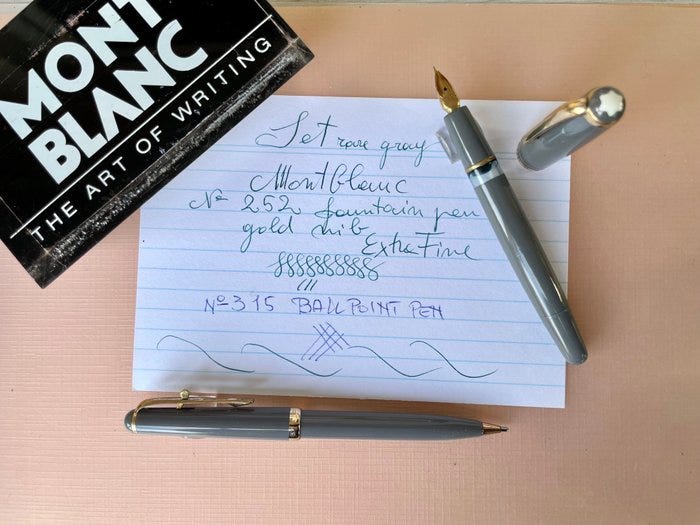 MONT
BLANC
THE ART OF WRITING
Set rare gray
Montblanc
No 252 fountain pen
gold nib
Extra Fine
Nº 315 BALLPOINT PEN